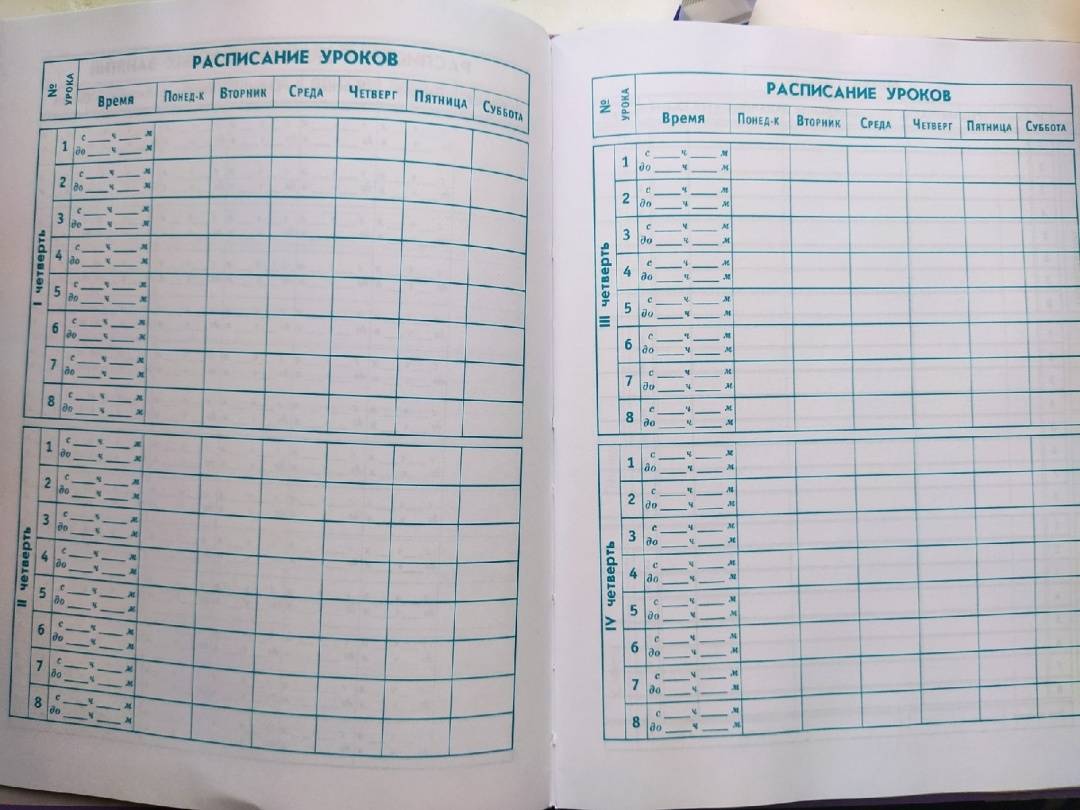 РАСПИСАНИЕ УРОКОВ
№ УРОКА Время ПОНЕД-К ВТОРНИК СРЕДА ЧЕТВЕРГ ПЯТНИЦА СУББОТА
I четверть
1 с ___ ч ___ м
до ___ ч ___ м
2 с ___ ч ___ м
до ___ ч ___ м
3 с ___ ч ___ м
до ___ ч ___ м
4 с ___ ч ___ м
до ___ ч ___ м
5 с ___ ч ___ м
до ___ ч ___ м
6 с ___ ч ___ м
до ___ ч ___ м
7 с ___ ч ___ м
до ___ ч ___ м
8 с ___ ч ___ м
до ___ ч ___ м
II четверть
1 с ___ ч ___ м
до ___ ч ___ м
2 с ___ ч ___ м
до ___ ч ___ м
3 с ___ ч ___ м
до ___ ч ___ м
4 с ___ ч ___ м
до ___ ч ___ м
5 с ___ ч ___ м
до ___ ч ___ м
6 с ___ ч ___ м
до ___ ч ___ м
7 с ___ ч ___ м
до ___ ч ___ м
8 с ___ ч ___ м
до ___ ч ___ м
РАСПИСАНИЕ УРОКОВ
№ УРОКА Время ПОНЕД-К ВТОРНИК СРЕДА ЧЕТВЕРГ ПЯТНИЦА СУББОТА
III четверть
1 с ___ ч ___ м
до ___ ч ___ м
2 с ___ ч ___ м
до ___ ч ___ м
3 с ___ ч ___ м
до ___ ч ___ м
4 с ___ ч ___ м
до ___ ч ___ м
5 с ___ ч ___ м
до ___ ч ___ м
6 с ___ ч ___ м
до ___ ч ___ м
7 с ___ ч ___ м
до ___ ч ___ м
8 с ___ ч ___ м
до ___ ч ___ м
IV четверть
1 с ___ ч ___ м
до ___ ч ___ м
2 с ___ ч ___ м
до ___ ч ___ м
3 с ___ ч ___ м
до ___ ч ___ м
4 с ___ ч ___ м
до ___ ч ___ м
5 с ___ ч ___ м
до ___ ч ___ м
6 с ___ ч ___ м
до ___ ч ___ м
7 с ___ ч ___ м
до ___ ч ___ м
8 с ___ ч ___ м
до ___ ч ___ м